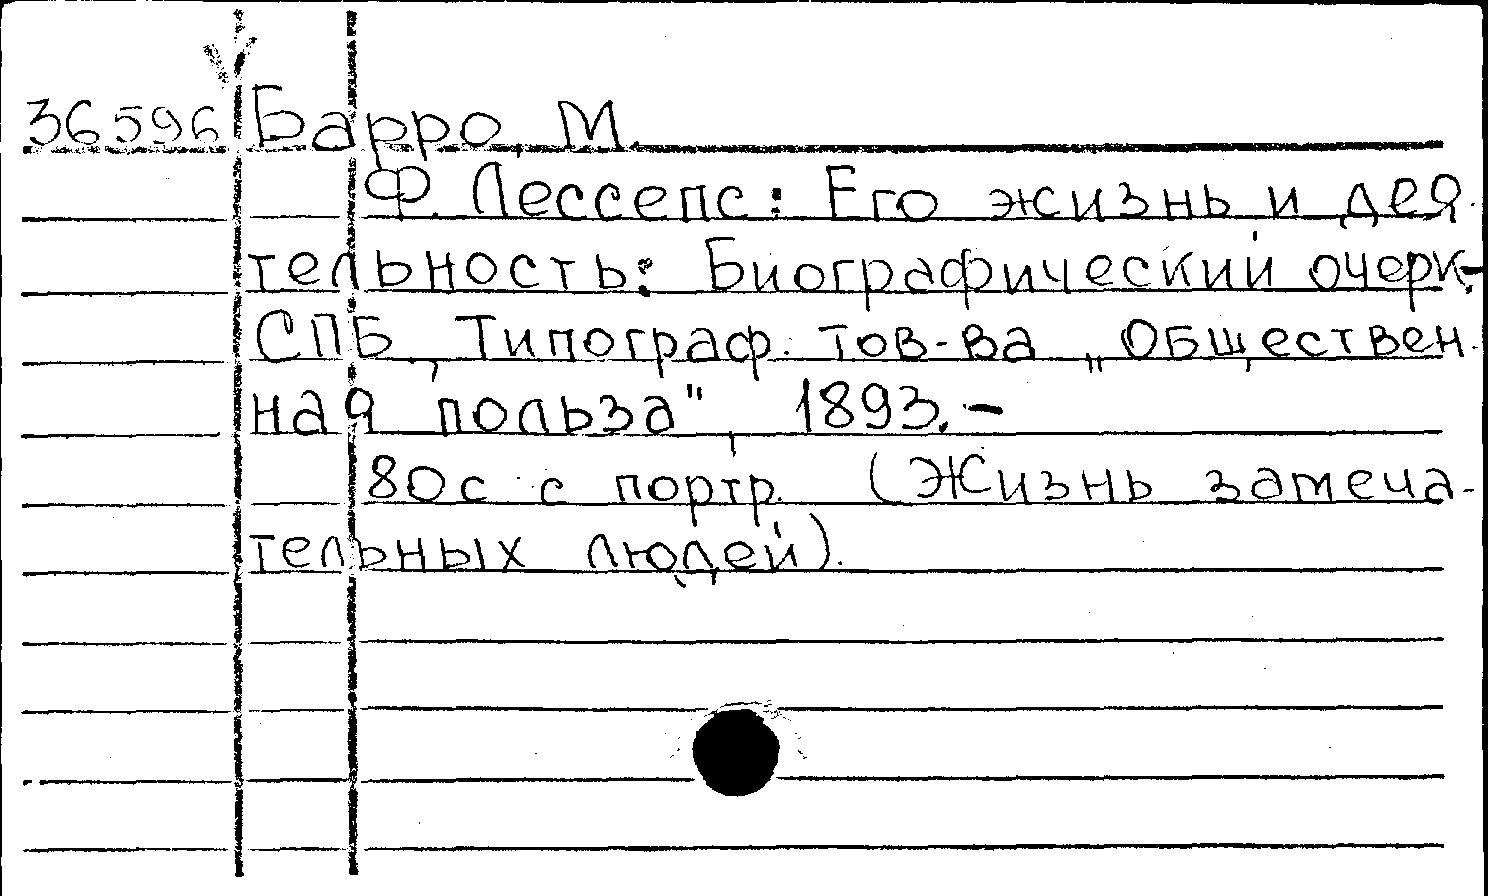 36596 Барро, М.
Ф. Лессепс: Его жизнь и дея-
тельность: Биографический очерк.-
СПБ, Типограф. тов-ва „Обществен-
ная польза", 1893.-
80с с портр. (Жизнь замеча-
тельных людей).